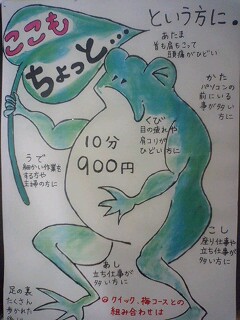 ここも
ちょっと…
という方に。
あたま
首も肩もこって
頭痛がひどい
かた
パソコンの
前にいる
事が多い
方に
くび
目の疲れや
肩コリが
ひどい方に
10分
900円
うで
細かい作業を
する方や
主婦の方に
こし
座り仕事が
多い方に
あし
立ち仕事が
多い方に
足の裏
たくさん
歩かれた
クイック、梅コースとの
組み合わせは